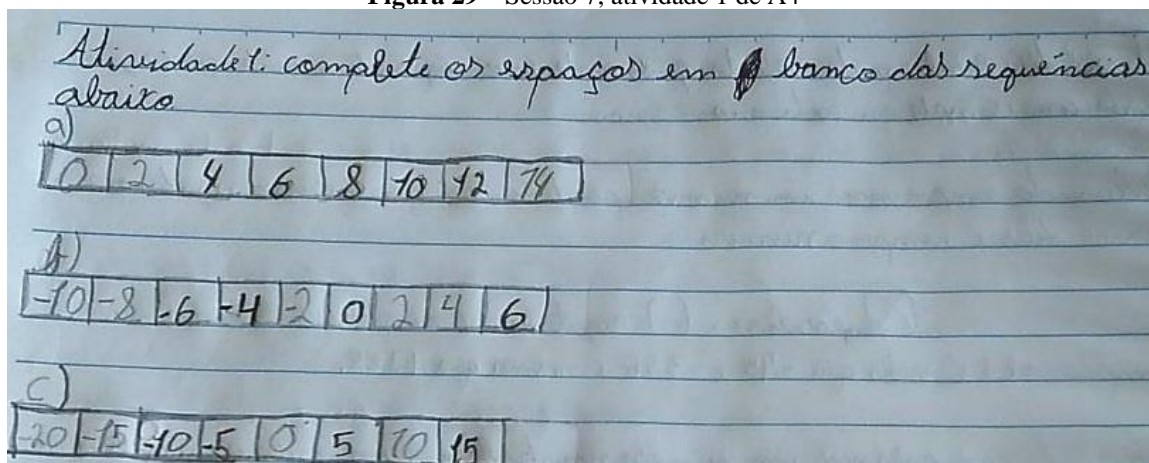 Figura 29 – Sessão 7, atividade 1 de A4
Atividade 1: complete os espaços em banco das sequências
abaixo
a)
0 2 4 6 8 10 12 14
b)
-10 -8 -6 -4 -2 0 2 4 6
c)
-20 -15 -10 -5 0 5 10 15